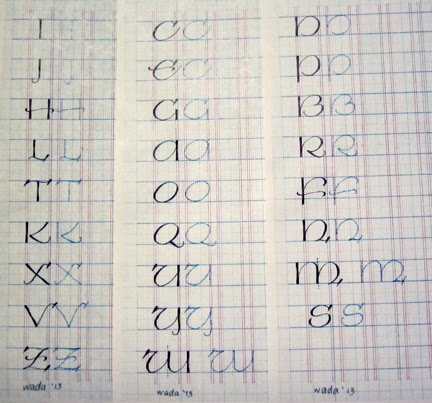 I I
J J
H H
L L
T T
K K
X X
V V
Z Z
wada '13
C C
E E
G G
A A
O O
Q Q
U U
Y Y
W W
wada '13
D D
P P
B B
R R
F F
N N
M M
S S
wada '13